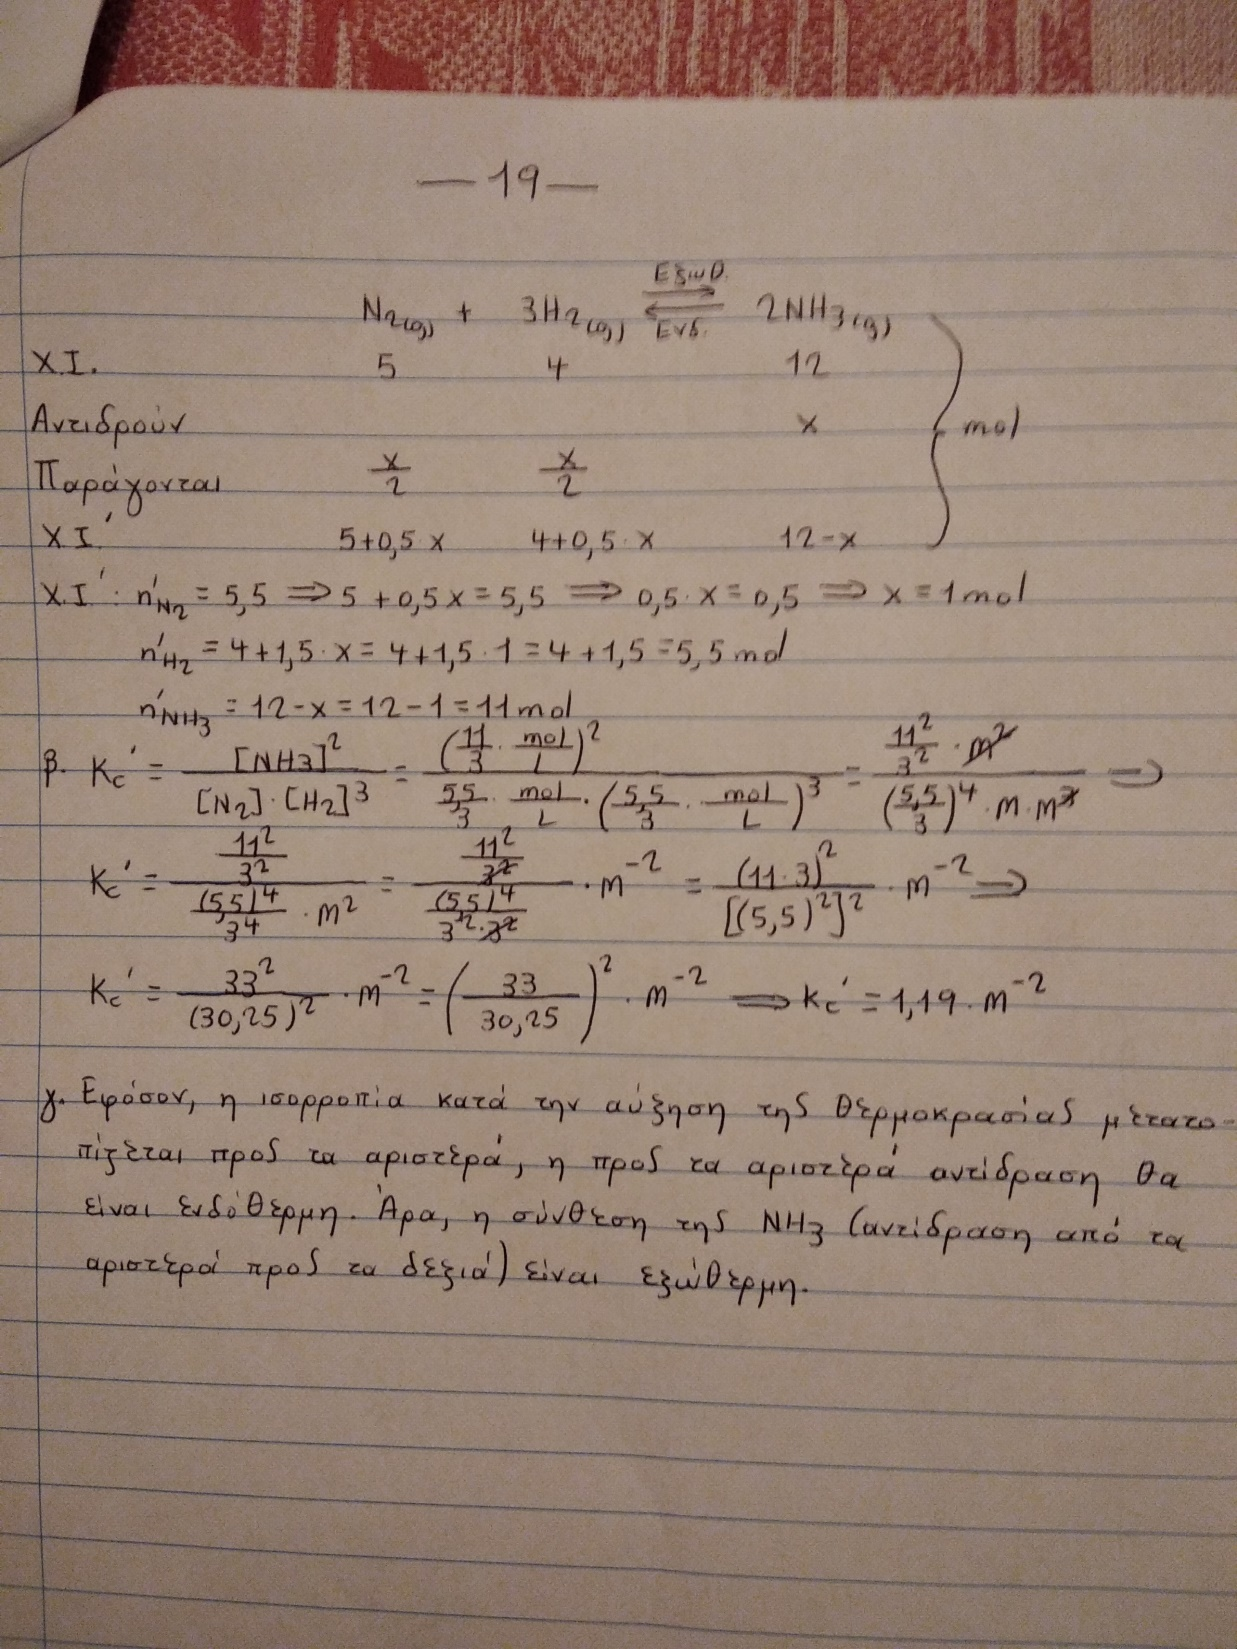 — 19 —
N₂(g) + 3H₂(g) ⇌ 2NH₃(g) Εξωθ. Ενδ.
Χ.Ι. 5 4 12
Αντιδρούν x mol
Παράγονται x/2 x/2
Χ.Ι.' 5+0,5·x 4+0,5·x 12-x
Χ.Ι.': n'N₂ = 5,5 ⇒ 5+0,5x = 5,5 ⇒ 0,5·x = 0,5 ⇒ x = 1mol
n'H₂ = 4+1,5·x = 4+1,5·1 = 4+1,5 = 5,5 mol
n'NH₃ = 12-x = 12-1 = 11mol
β. Kc' = [NH3]²/([N₂]·[H₂]³) = (11/3 · mol/L)²/(5,5/3 · mol/L · (5,5/3 · mol/L)³) = (11²/3² · M²)/((5,5/3)⁴ · M · M³) ⇒
Kc' = (11²/3²)/((5,5)⁴/3⁴ · M²) = (11²/3²)/((5,5)⁴/(3²·3²)) · M⁻² = (11·3)²/[(5,5)²]² · M⁻² ⇒
Kc' = 33²/(30,25)² · M⁻² = (33/30,25)² · M⁻² ⇒ Kc' = 1,19 · M⁻²
γ. Εφόσον, η ισορροπία κατά την αύξηση της θερμοκρασίας μετατο-
πίζεται προς τα αριστερά, η προς τα αριστερά αντίδραση θα
είναι ενδόθερμη. Άρα, η σύνθεση της NH₃ (αντίδραση από τα
αριστερά προς τα δεξιά) είναι εξώθερμη.